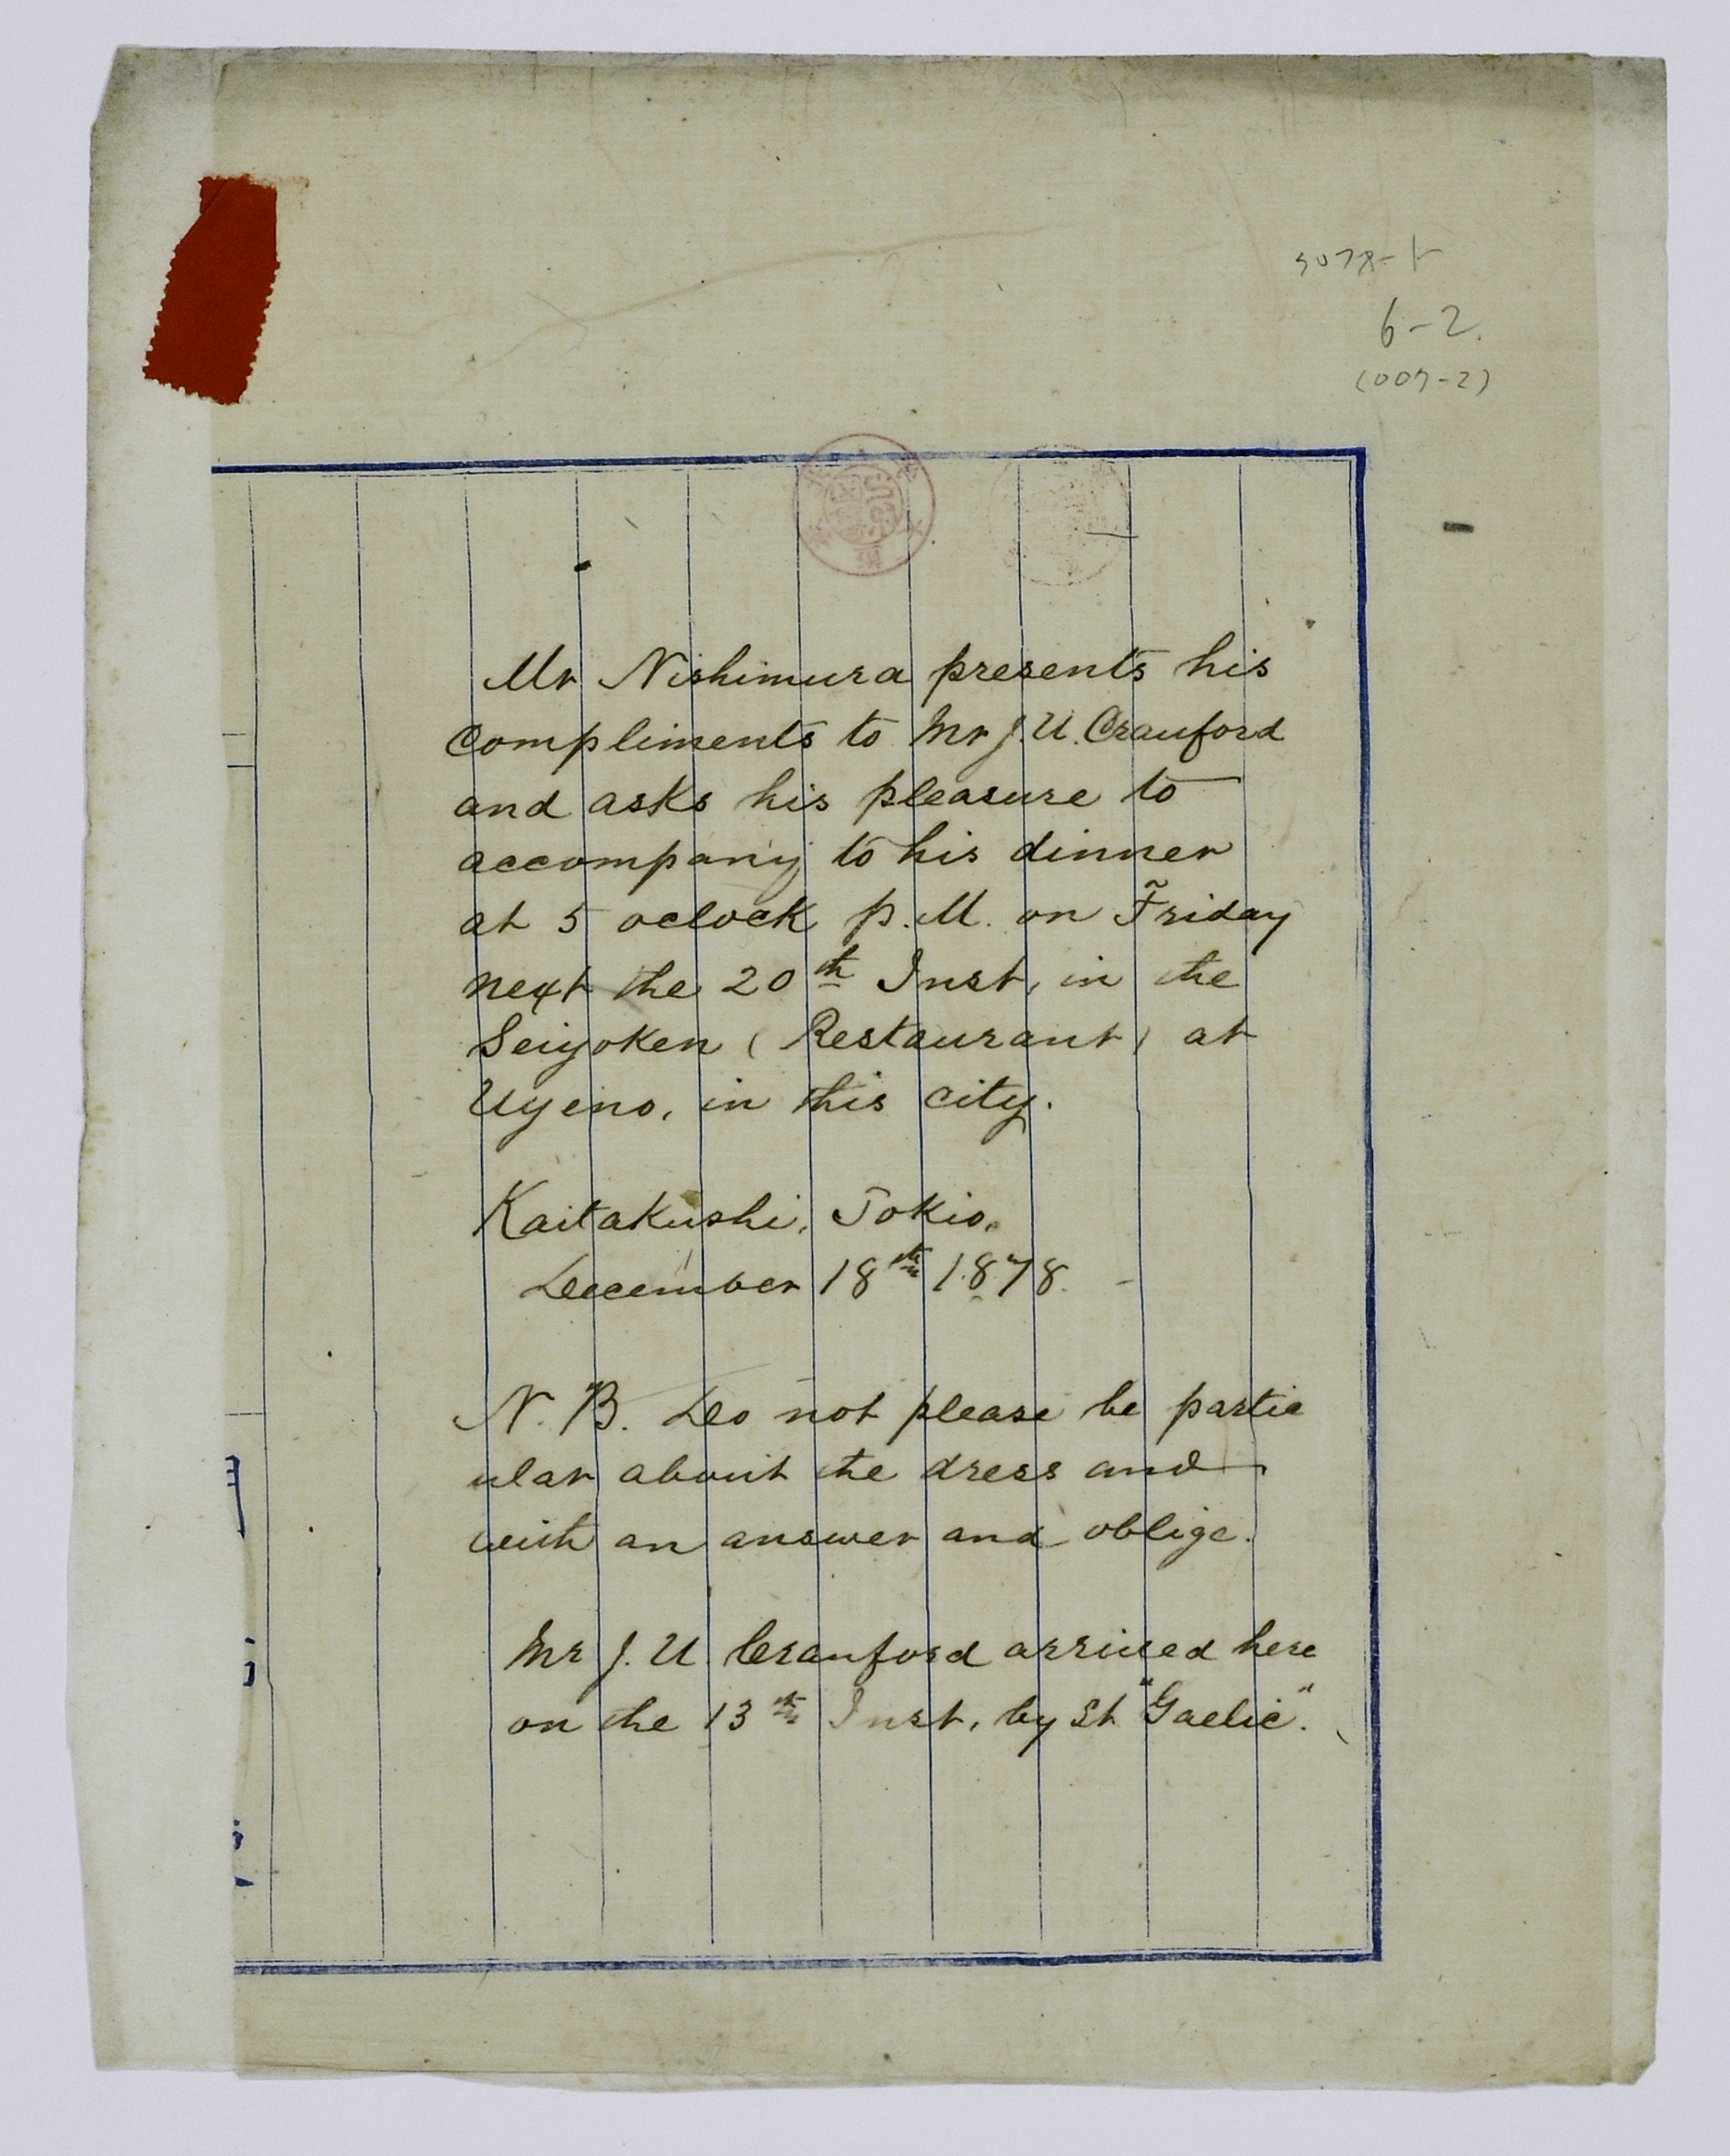 5078-1
6-2.
(007-2)
Mr Nishimura presents his
compliments to Mr J. U. Crauford
and asks his pleasure to
accompany to his dinner
at 5 oclock p.M. on Friday
next the 20th Inst, in the
Seiyoken (Restaurant) at
Uyeno, in this city.
Kaitakushi, Tokio,
December 18th 1878.
N.B. Do not please be partic
ular about the dress and
with an answer and oblige.
Mr J. U Crauford arrived here
on the 13th Inst, by St "Gaelic".